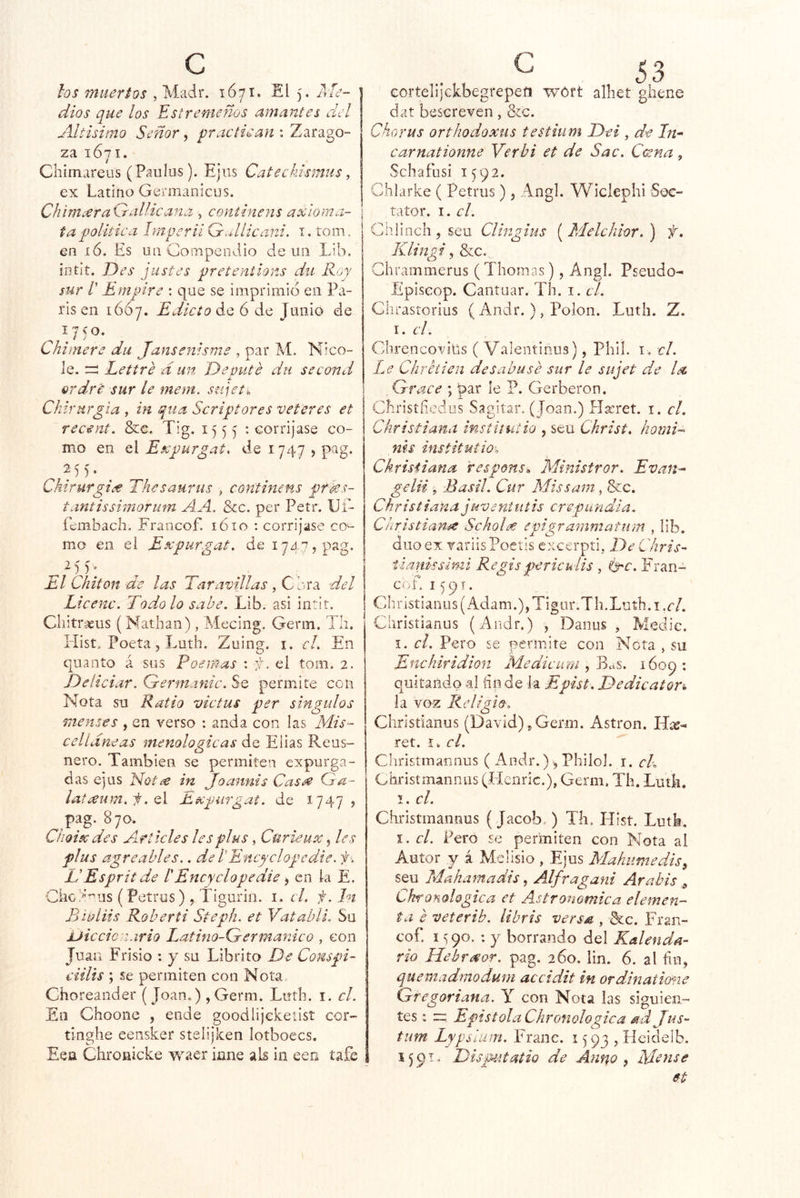 C
los muertos , Madr. 1671. El 5. Me-
dios que los Estremeños amantes del
Altisimo Señor, practican : Zarago-
za 1671.
Chimareus (Paulus). Ejus Catechismus,
ex Latino Germanicus.
Chimæra Gallicana , continens axioma-
ta politica Imperii Gallicani. 1. tom.
en 16. Es un Compendio de un Lib.
intit. Des justes pretentions du Roy
sur l' Empire : que se imprimió en Pa-
ris en 1667. Edicto de 6 de Junio de
1750.
Chimere du Jansenisme , par M. Nico-
le. = Lettrè à un Deputè du second
ordrè sur le mem. sujet.
Chirurgia , in qua Scriptores veteres et
recent. &c. Tig. 1555 : corrijase co-
mo en el Expurgat. de 1747, pag.
255.
Chirurgiæ Thesaurus , continens præs-
tantissimorum AA. &c. per Petr. Uf-
fembach. Francof. 1610 : corrijase co-
mo en el Expurgat. de 1747, pag.
255.
El Chiton de las Taravillas, Obra del
Licenc. Todo lo sabe. Lib. asi intit.
Chitræus ( Nathan), Mecing. Germ. Th.
Hist. Poeta, Luth. Zuing. 1. cl. En
quanto á sus Poemas : ꝟ. el tom. 2.
Deliciar. Germanic. Se permite con
Nota su Ratio victus per singulos
menses , en verso : anda con las Mis-
celláneas menologicas de Elias Reus-
nero. Tambien se permiten expurga-
das ejus Notæ in Joannis Casæ Ga-
latæum. ꝟ. el Expurgat. de 1747 ,
pag. 870.
Choix des Articles les plus , Curieux , les
plus agreables.. de l'Encyclopedie. ꝟ.
L'Esprit de l'Encyclopedie , en la E.
(Petrus) , Tigurin. 1. cl. ꝟ. In
Bibliis Roberti Steph. et Vatabli. Su
Diccionario Latino-Germanico , con
Juan Frisio : y su Librito De Conspi-
ciilis ; se permiten con Nota.
Choreander ( Joan. ) , Germ. Luth. 1. cl.
En Choone , ende goodlijckeiist cor-
tinghe eensker stelijken lotboecs.
Een Chronicke waer inne als in een tafe
C 53
cortelijckbegrepen wort alhet ghene
dat bescreven , &c.
Chorus orthodoxus testium Dei , de In-
carnationne Verbi et de Sac. Cœna ,
Schafusi 1592.
Chlarke ( Petrus ) , Angl. Wiclephi Sec-
tator. 1. cl.
Chlinch , seu Clingius ( Melchior. ) ꝟ.
Klingi , &c.
Chrammerus ( Thomas ) , Angl. Pseudo-
Episcop. Cantuar. Th. 1. cl.
Chrastorius ( Andr. ), Polon. Luth. Z.
1. cl.
Chrencovitis ( Valentinus ) , Phil. 1. cl.
Le Chrêtien desabusè sur le sujet de la
Grace ; par le P. Gerberon.
Christfiedus Sagitar. (Joan.) Hæret. 1. cl.
Christiana institutio , seu Christ. homi-
nis institutio.
Christiana respons. Ministror. Evan-
gelii , Basil. Cur Missam , &c.
Christiana juventutis crepundia.
Christianæ Scholæ epigrammatum , lib.
duo ex variis Poetis excerpti, De Chris-
tianissimi Regis periculis , &c. Fran-
cof. 1591.
Christianus (Adam.), Tigur.Th.Luth.1.cl.
Christianus ( Andr. ) , Danus , Medic.
1. cl. Pero se permite con Nota , su
Enchiridion Medicum , Bas. 1609 :
quitando al fin de la Epist. Dedicator.
la voz Religio.
Christianus (David), Germ. Astron. Hæ-
ret. 1. cl.
Christmannus ( Andr. ) , Philol. 1. cl.
Christmannus (Henric.), Germ. Th. Luth.
1. cl.
Christmannus ( Jacob. ) Th. Hist. Luth.
1. cl. Pero se permiten con Nota al
Autor y á Melisio , Ejus Mahumedis,
seu Mahamadis , Alfragani Arabis ,
Chronologica et Astronomica elemen-
ta è veterib. libris versa , &c. Fran-
cof. 1590. : y borrando del Kalenda-
rio Hebræor. pag. 260. lin. 6. al fin,
quemadmodum accidit in ordinatione
Gregoriana. Y con Nota las siguien-
tes : = Epistola Chronologica ad Jus-
tum Lypsium. Franc. 1593 , Heidelb.
1591. Disputatio de Anno , Mense
et